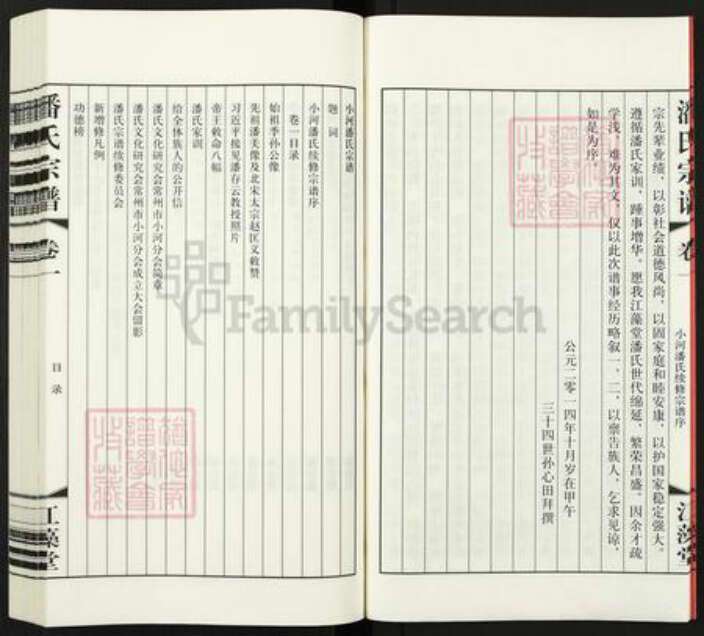 宗先辈业绩，以彰社会道德风尚，以固家庭和睦安康，以护国家稳定强大。
遵循潘氏家训，踵事增华，愿我江藻堂潘氏世代绵延，繁荣昌盛。因余才疏
学浅，难为其文，仅以此次谱事经历略叙一、二，以禀告族人，乞求见谅。
如是为序
公元二零一四年十月岁在甲午
三十四世孙心田拜撰
潘氏宗谱
卷一
小河潘氏续修宗谱序
江藻堂
小河潘氏宗谱
题词
小河潘氏续修宗谱序
卷一目录
始祖季孙公像
先祖潘美像及北宋太宗赵匡义敕赞
习近平接见潘存云教授照片
帝王敕命八幅
潘氏家训
给全体族人的公开信
潘氏文化研究会常州市小河分会简章
潘氏文化研究会常州市小河分会成立大会留影
潘氏宗谱续修委员会
新增修凡例
功德榜
潘氏宗谱
卷一
目录
江藻堂
FamilySearch